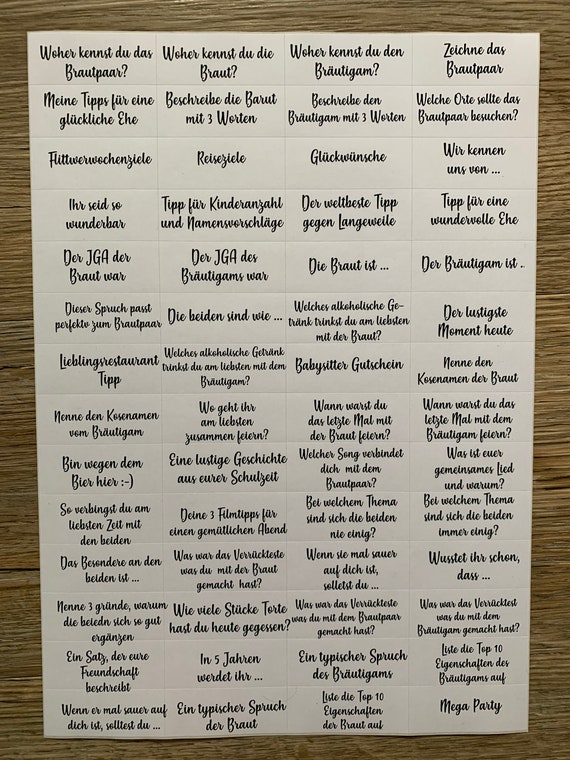 Woher kennst du das
Brautpaar?
Woher kennst du die
Braut?
Woher kennst du den
Bräutigam?
Zeichne das
Brautpaar
Meine Tipps für eine
glückliche Ehe
Beschreibe die Barut
mit 3 Worten
Beschreibe den
Bräutigam mit 3 Worten
Welche Orte sollte das
Brautpaar besuchen?
Flittwerwochenziele
Reiseziele
Glückwünsche
Wir kennen
uns von ...
Ihr seid so
wunderbar
Tipp für Kinderanzahl
und Namensvorschläge
Der weltbeste Tipp
gegen Langeweile
Tipp für eine
wundervolle Ehe
Der JGA der
Braut war
Der JGA des
Bräutigams war
Die Braut ist ...
Der Bräutigam ist ..
Dieser Spruch passt
perfektv zum Brautpaar
Die beiden sind wie ...
Welches alkoholische Ge-
tränk trinkst du am liebsten
mit der Braut?
Der lustigste
Moment heute
Lieblingsrestaurant
Tipp
Welches alkoholische Getränk
trinkst du am liebsten mit dem
Bräutigam?
Babysitter Gutschein
Nenne den
Kosenamen der Braut
Nenne den Kosenamen
vom Bräutigam
Wo geht ihr
am liebsten
zusammen feiern?
Wann warst du
das letzte Mal mit
der Braut feiern?
Wann warst du das
letzte Mal mit dem
Bräutigam feiern?
Bin wegen dem
Bier hier :-)
Eine lustige Geschichte
aus eurer Schulzeit
Welcher Song verbindet
dich mit dem
Brautpaar?
Was ist euer
gemeinsames Lied
und warum?
So verbingst du am
liebsten Zeit mit
den beiden
Deine 3 Filmtipps für
einen gemütlichen Abend
Bei welchem Thema
sind sich die beiden
nie einig?
Bei welchem Thema
sind sich die beiden
immer einig?
Das Besondere an den
beiden ist ...
Was war das Verrückteste
was du mit der Braut
gemacht hast?
Wenn sie mal sauer
auf dich ist,
solletst du ...
Wusstet ihr schon,
dass ...
Nenne 3 gründe, warum
die beiedn sich so gut
ergänzen
Wie viele Stücke Torte
hast du heute gegessen?
Was war das Verrückteste
was du mit dem Brautpaar
gemacht hast?
Was war das Verrücktest
was du mit dem
Bräutigam gemacht hast?
Ein Satz, der eure
Freundschaft
beschreibt
In 5 Jahren
werdet ihr ...
Ein typischer Spruch
des Bräutigams
Liste die Top 10
Eigenschaften des
Bräutigams auf
Wenn er mal sauer auf
dich ist, solltest du ...
Ein typischer Spruch
der Braut
Liste die Top 10
Eigenschaften
der Braut auf
Mega Party